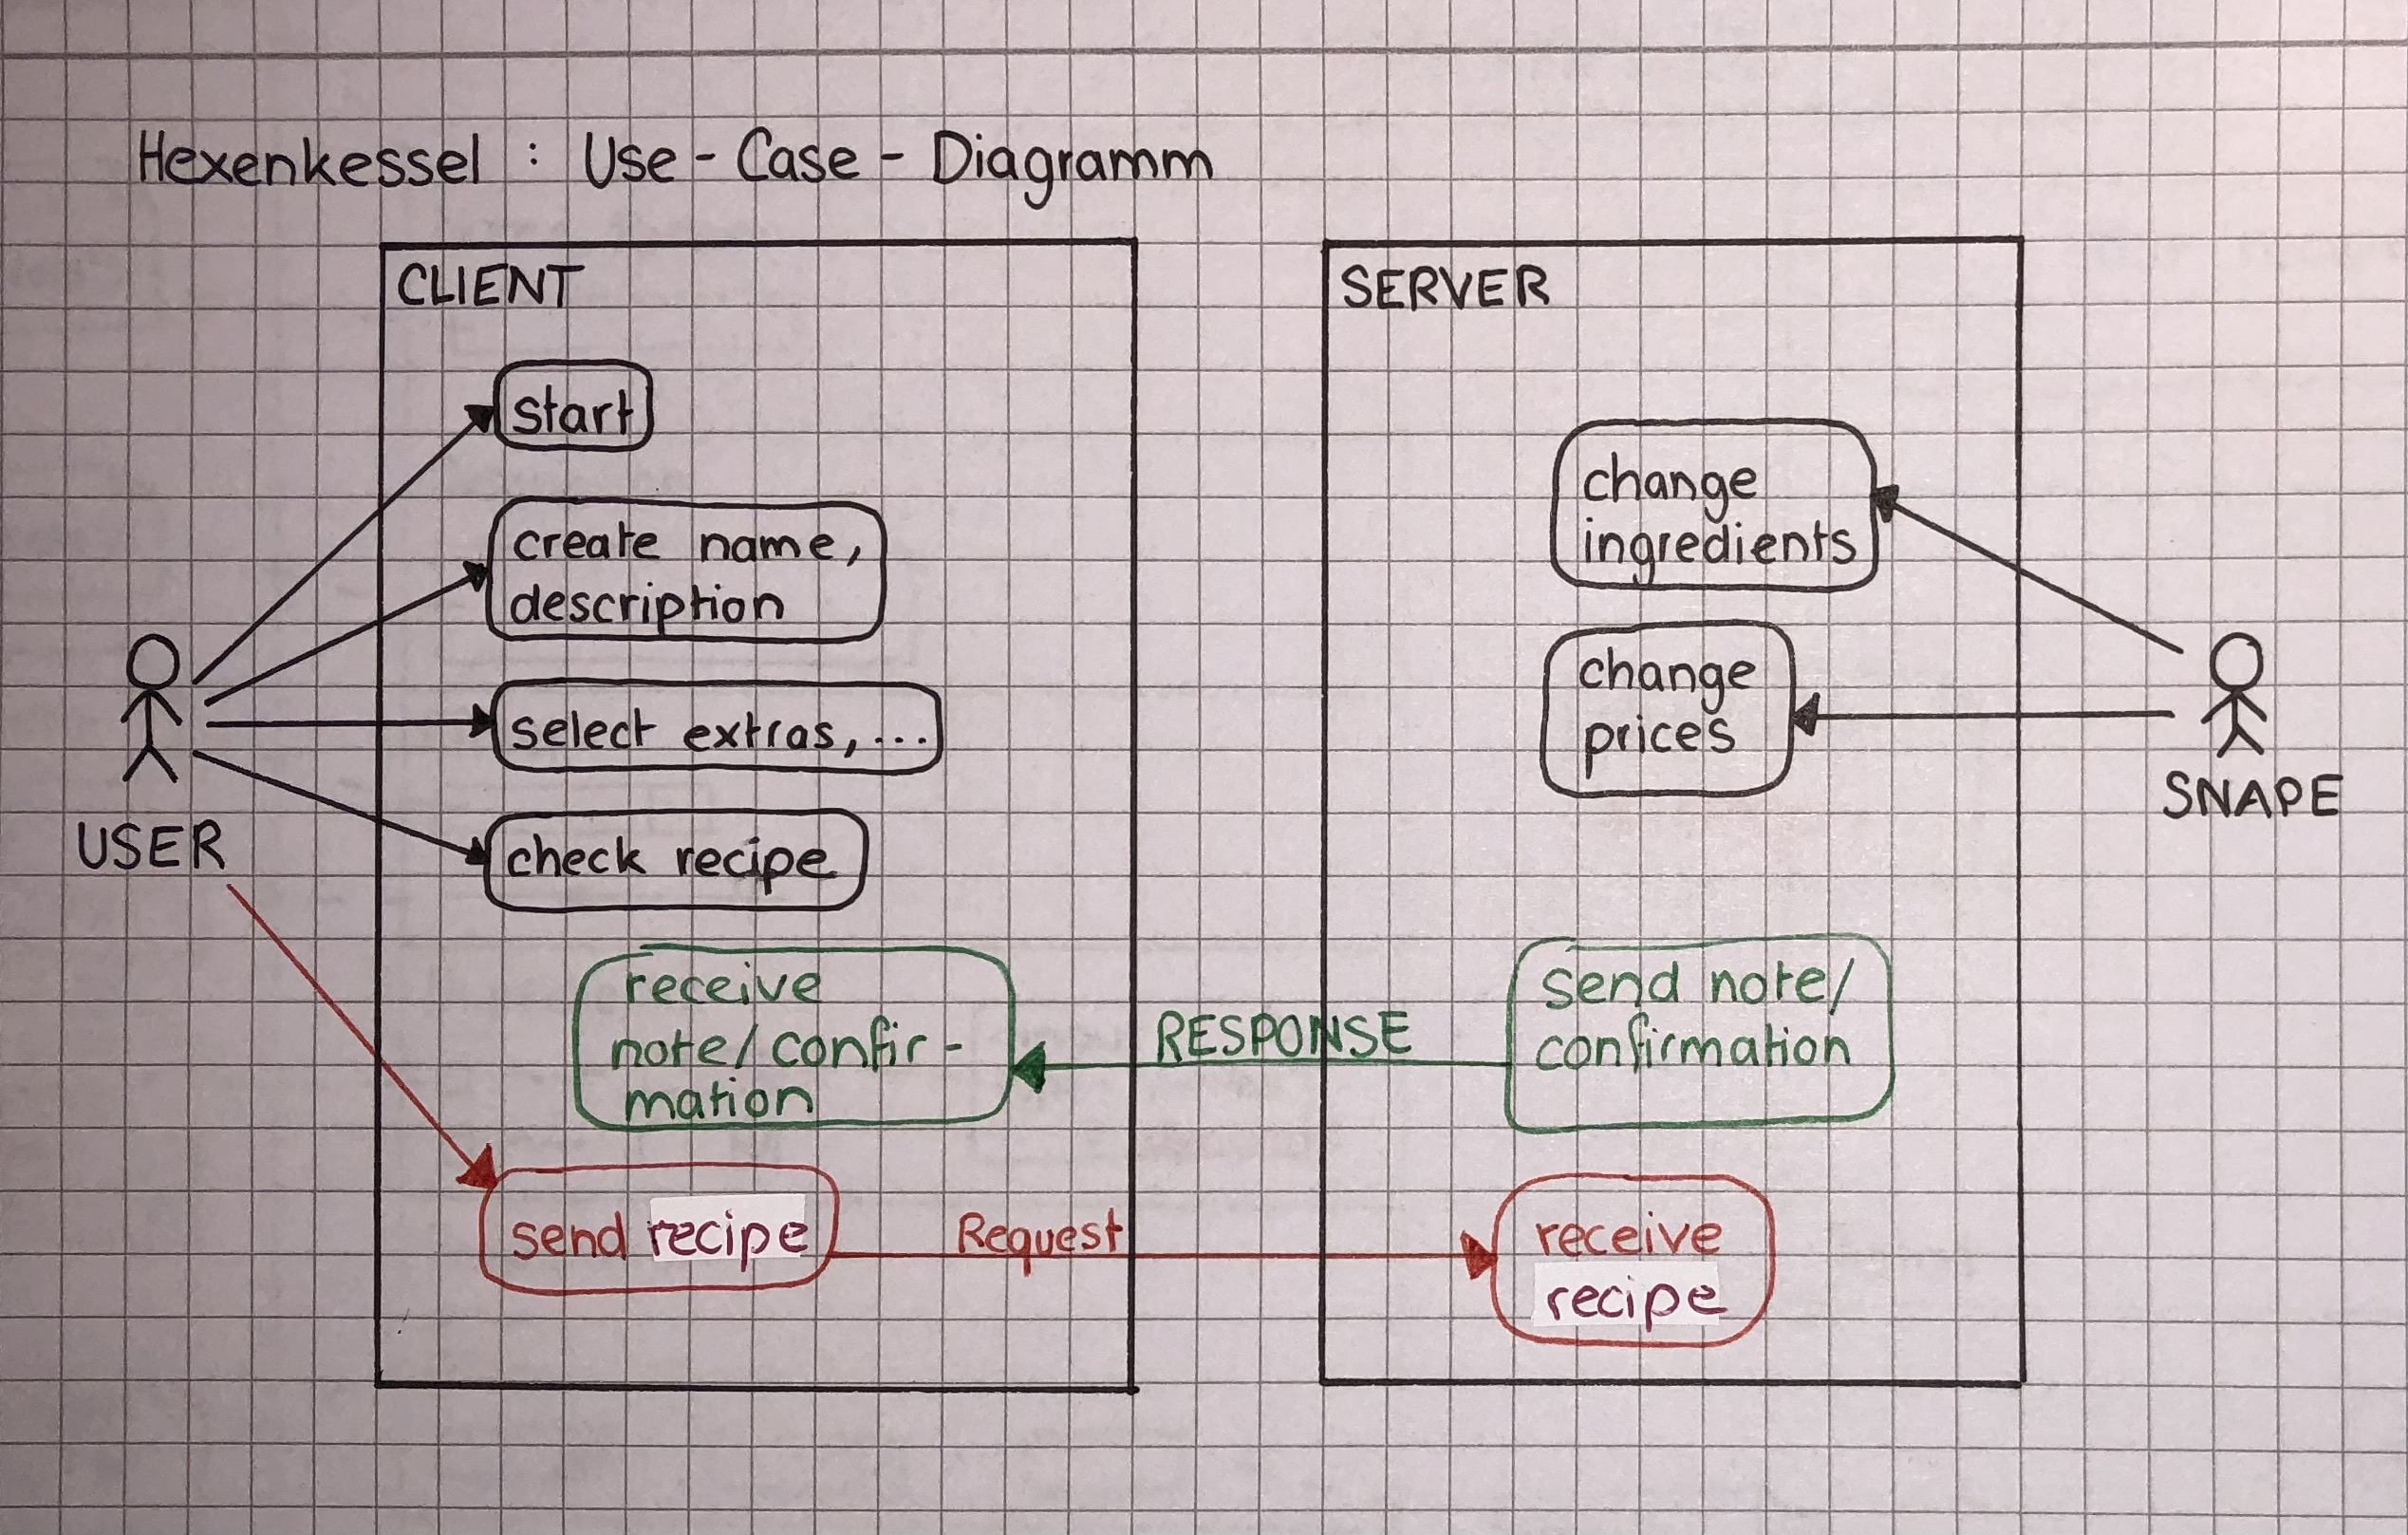 Hexenkessel : Use - Case - Diagramm
CLIENT
start
create name,
description
select extras, ...
check recipe
USER
receive
note/confir-
mation
send recipe
RESPONSE
Request
SERVER
change
ingredients
change
prices
SNAPE
send note/
confirmation
receive
recipe